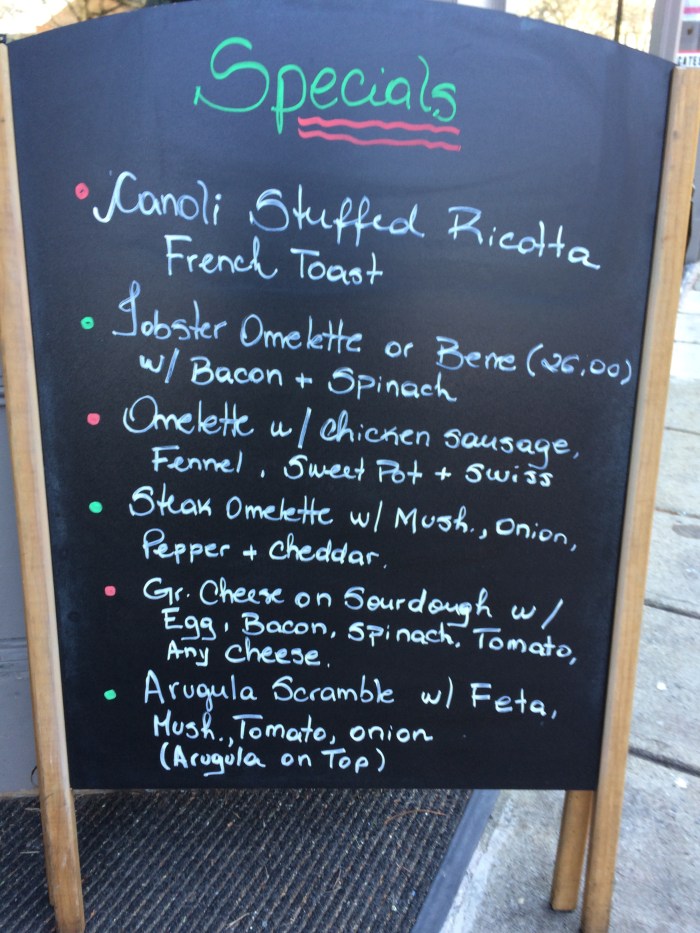 Specials
Canoli Stuffed Ricotta
French Toast
Lobster Omelette or Bene (26.00)
w/ Bacon + Spinach
Omelette w/ chicken sausage,
Fennel, Sweet Pot + Swiss
Steak Omelette w/ Mush., Onion,
Pepper + cheddar.
Gr. Cheese on Sourdough w/
Egg, Bacon, Spinach, Tomato,
Any cheese.
Arugula Scramble w/ Feta,
Mush., Tomato, onion
(Arugula on Top)